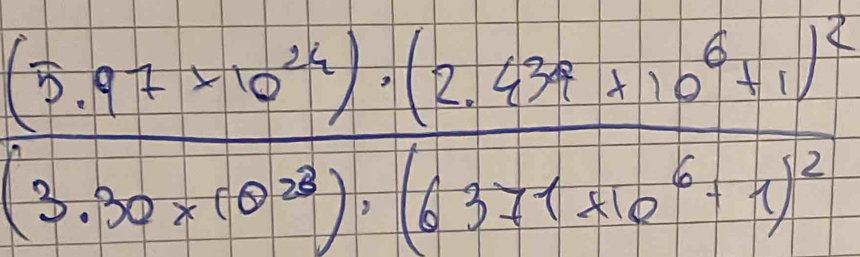 (5.97 × 10^24) · (2.439 × 10^6 + 1)^2
(3.30 × 10^23) · (6371 × 10^6 + 1)^2